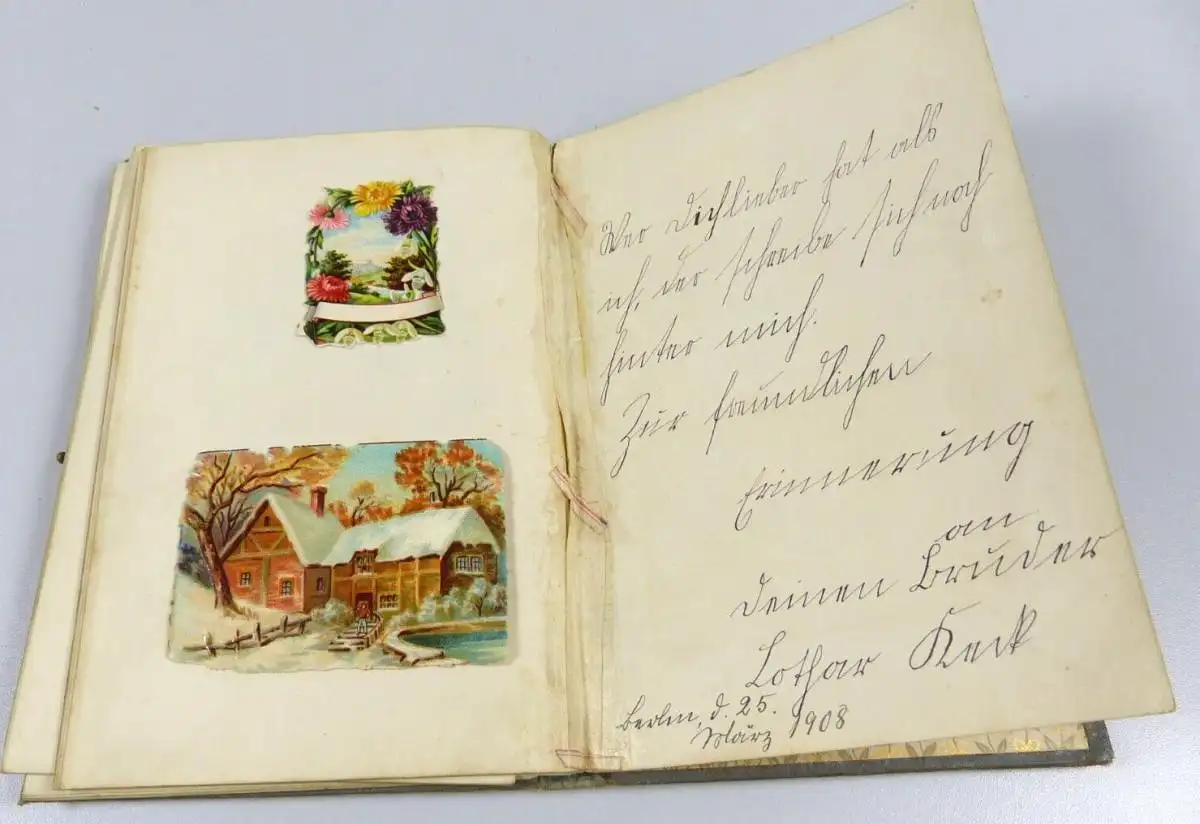 Wer Dich lieber hat als
ich, der schreibe sich noch
hinter mich.
Zur freundlichen
Erinnerung
an
deinen Bruder
Lothar Keck
Berlin, d. 25.
März 1908